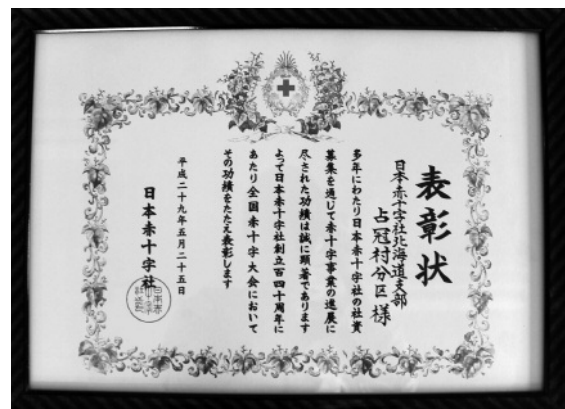 表彰状
日本赤十字社北海道支部
占冠村分区 様
多年にわたり日本赤十字社の社資
募集を通じて赤十字事業の進展に
尽された功績は誠に顕著であります
よって日本赤十字社創立百四十周年に
あたり全国赤十字大会において
その功績をたたえ表彰します
平成二十九年五月二十五日
日本赤十字社